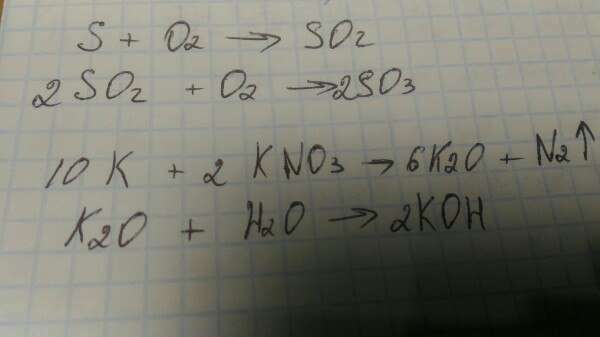 S + O2 → SO2
2SO2 + O2 → 2SO3
10 K + 2 KNO3 → 6K2O + N2↑
K2O + H2O → 2KOH